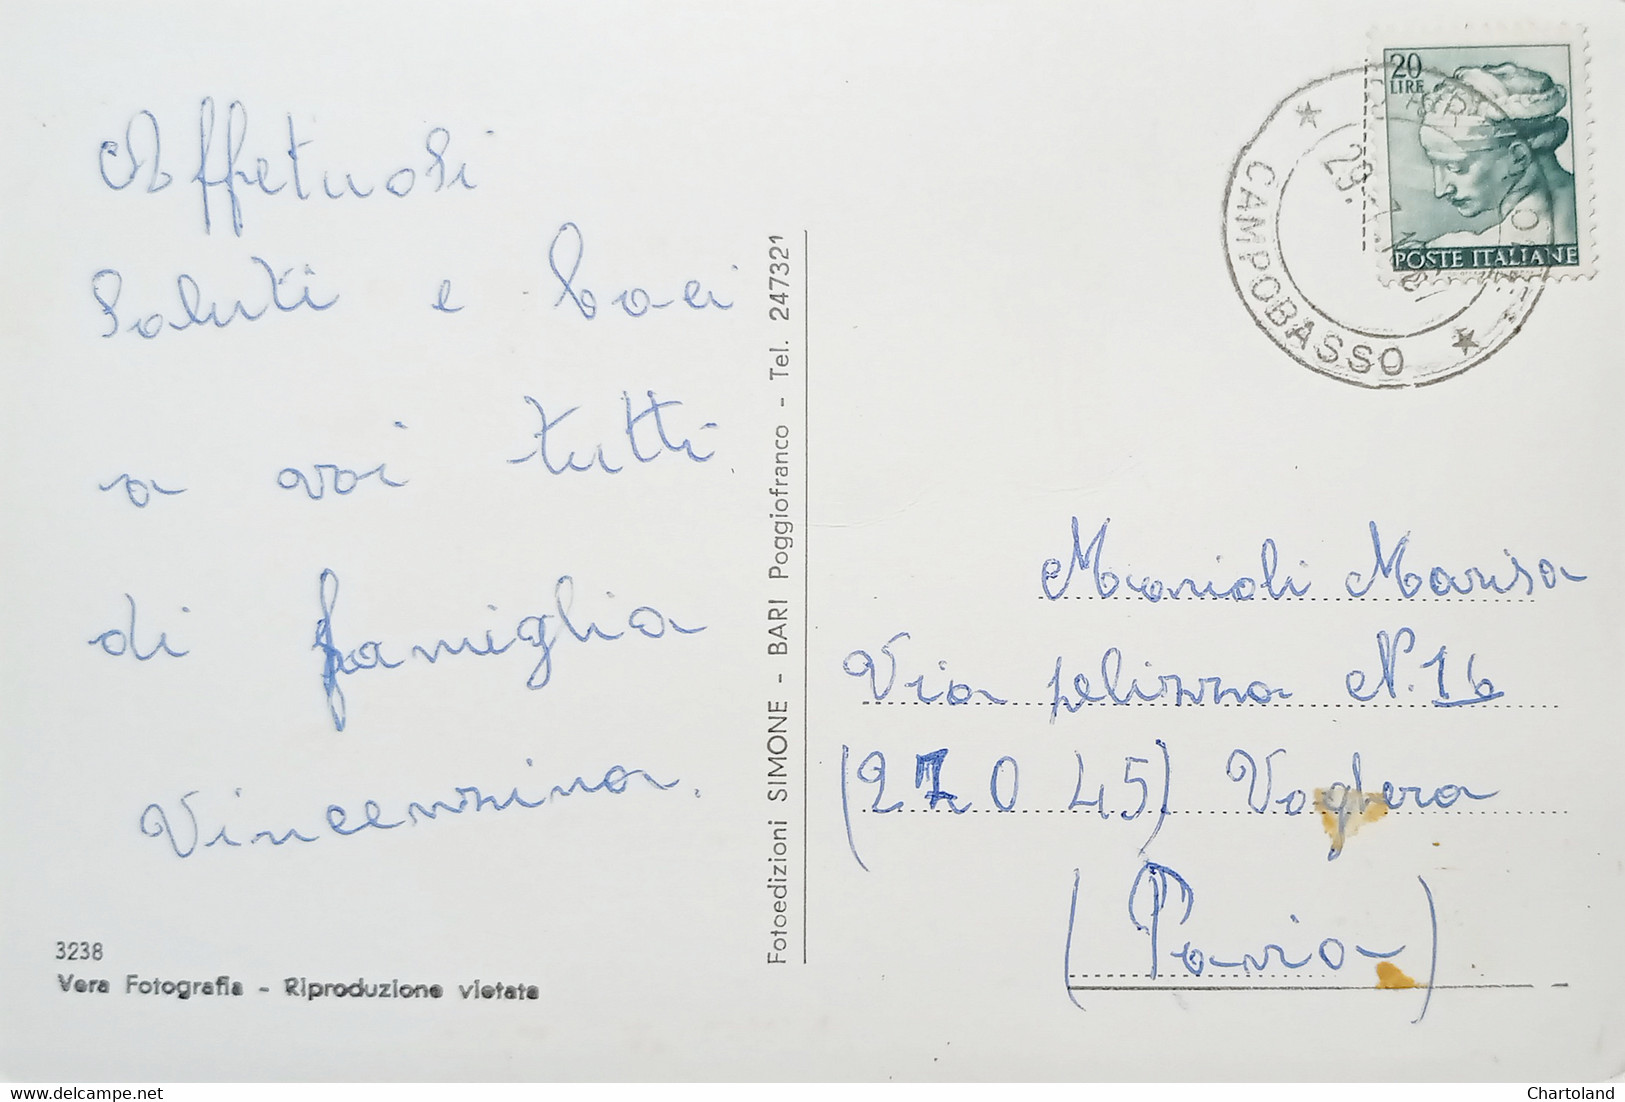 Affetuosi
Saluti e baci
a voi tutti
di famiglia
Vincenzina.
3238
Vera Fotografia - Riproduzione vietata
Fotoedizioni SIMONE - BARI Poggiofranco - Tel. 247321
20
LIRE
POSTE ITALIANE
CAMPOBASSO
Manioli Marisa
Via pelizza N. 16
(27045) Voghera
(Pavia)
www.delcampe.net
Chartoland